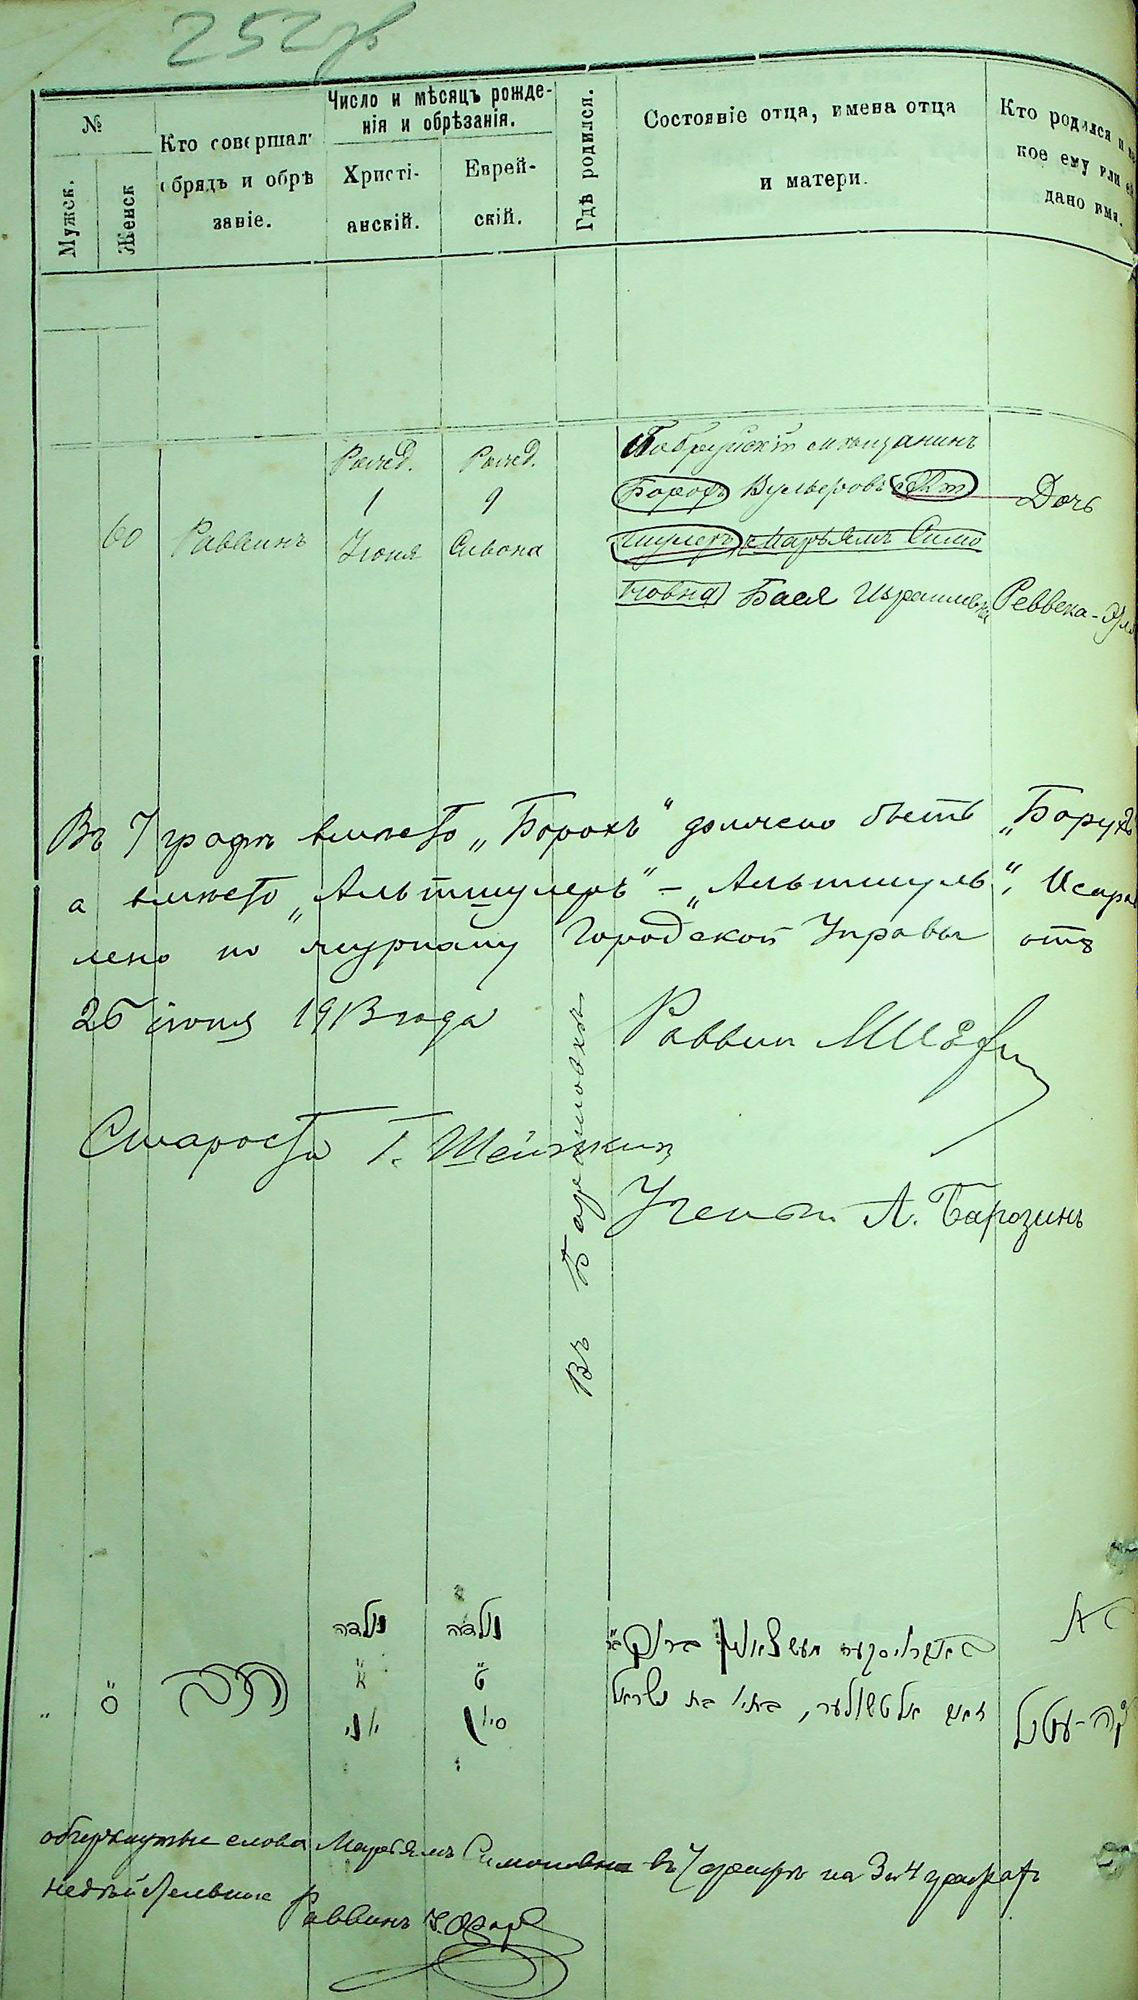 252об
№
Мужск.
Женск
Кто совершал
обрядъ и обрѣ
заніе.
Число и мѣсяцъ рожде-
нія и обрѣзанія.
Христі-
анскій.
Еврей-
скій.
Гдѣ родился.
Состояніе отца, имена отца
и матери.
Кто родился и ка
кое ему или ей
дано имя.
60
Раввинъ
Рожд.
1
Іюня
Рожд.
9
Сивона
Въ
Бобруйскій мѣщанинъ
Борохъ Вульфовъ Альт
шулеръ Марьямъ Симо
новна Бася Израилевна
Дочь
Реввека-
Въ 7 графѣ вмѣсто „Борохъ“ должно быть „Борухъ
а вмѣсто „Альтшулеръ“ – „Альтшуль“, Исправ
лено по журналу Городской Управы отъ
26 іюня 1913 года
Раввин
Староста Г. Шейнкин
Ученый А. Барозинъ
נולדה
א
יוני
נולדה
ט
סיון
ס
הרב
אלטשולער, בת
обчеркнутые слова Марьямъ Симоновна въ 7 графѣ на 3 и 4 графѣ
недѣйствельные
Раввинъ